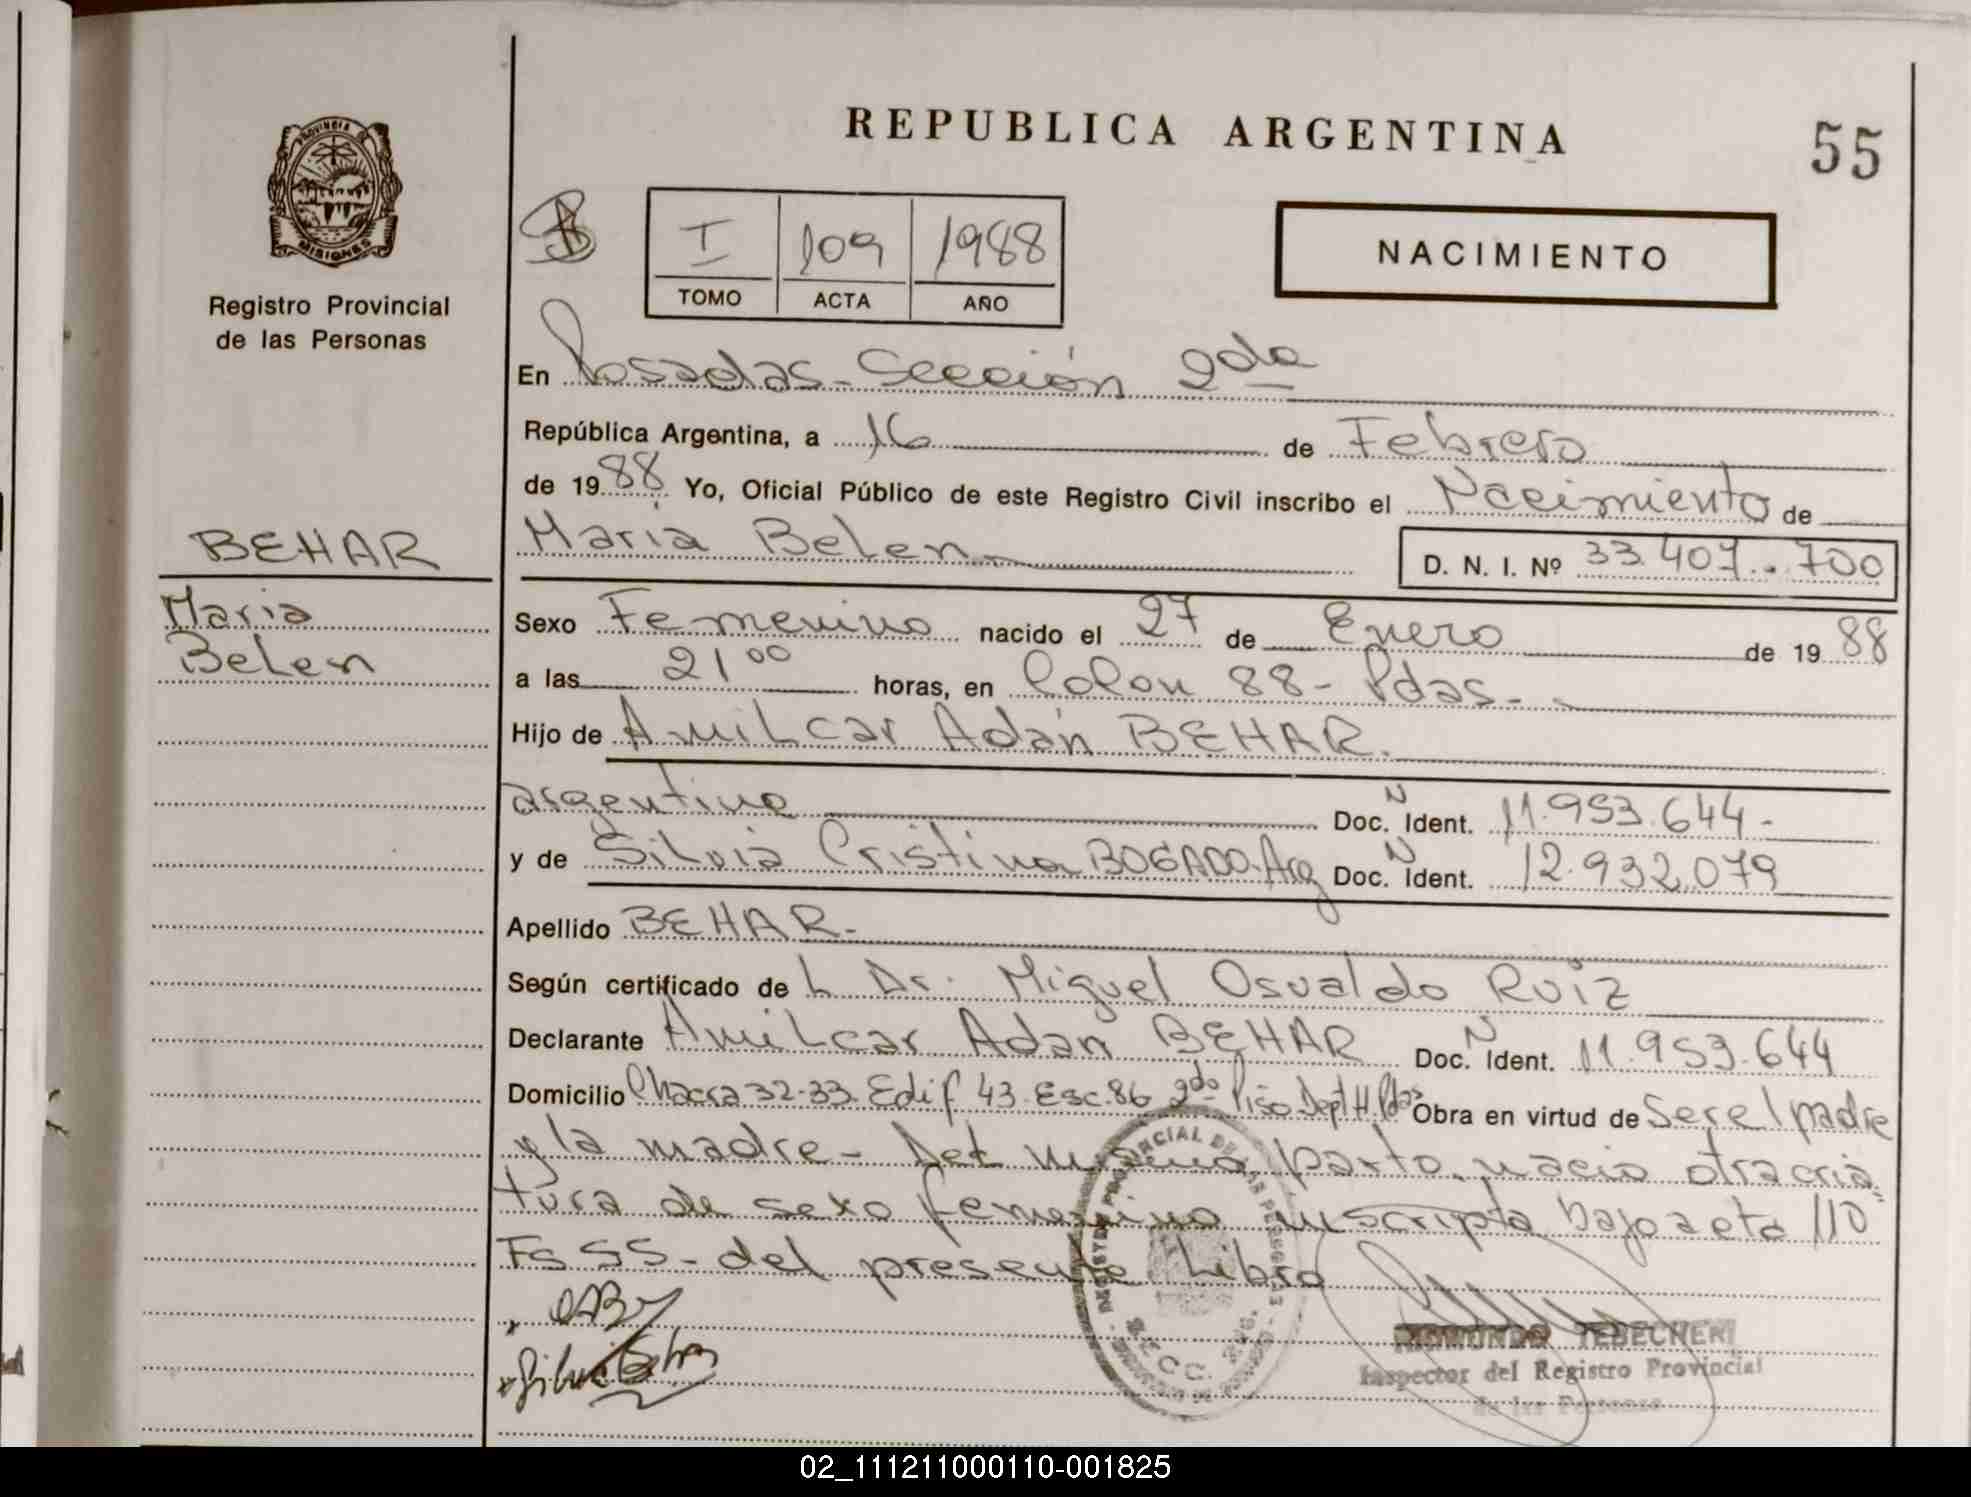 REPUBLICA ARGENTINA
55
PROVINCIA DE
MISIONES
Registro Provincial
de las Personas
I 109 1988
TOMO ACTA AÑO
NACIMIENTO
En Posadas - Sección 2da
República Argentina, a 16 de Febrero
de 1988 Yo, Oficial Público de este Registro Civil inscribo el Nacimiento de
BEHAR
Maria Belen
D. N. I. Nº 33.407.700
Maria
Belen
Sexo Femenino nacido el 27 de Enero de 1988
a las 21 00 horas, en Colon 88 - Pdas -
Hijo de Amilcar Adán BEHAR.
argentino Doc. N Ident. 11.953.644 -
y de Silvia Cristina BOGADO. Arg Doc. N Ident. 12.932.079
Apellido BEHAR -
Según certificado de L Dr. Miguel Osvaldo Ruiz
Declarante Amilcar Adan BEHAR Doc. N Ident. 11.953.644
Domicilio Chacra 32-33 Edif 43 Esc. 86 2do Piso Dept H Pdas Obra en virtud de Ser el padre
y la madre - Del mismo parto, nacio otra cria
tura de sexo femenino inscripta bajo acta 110
Fs 55 - del presente Libro
Silvia
TEBECHERI
Inspector del Registro Provincial
de las Personas
02_111211000110-001825